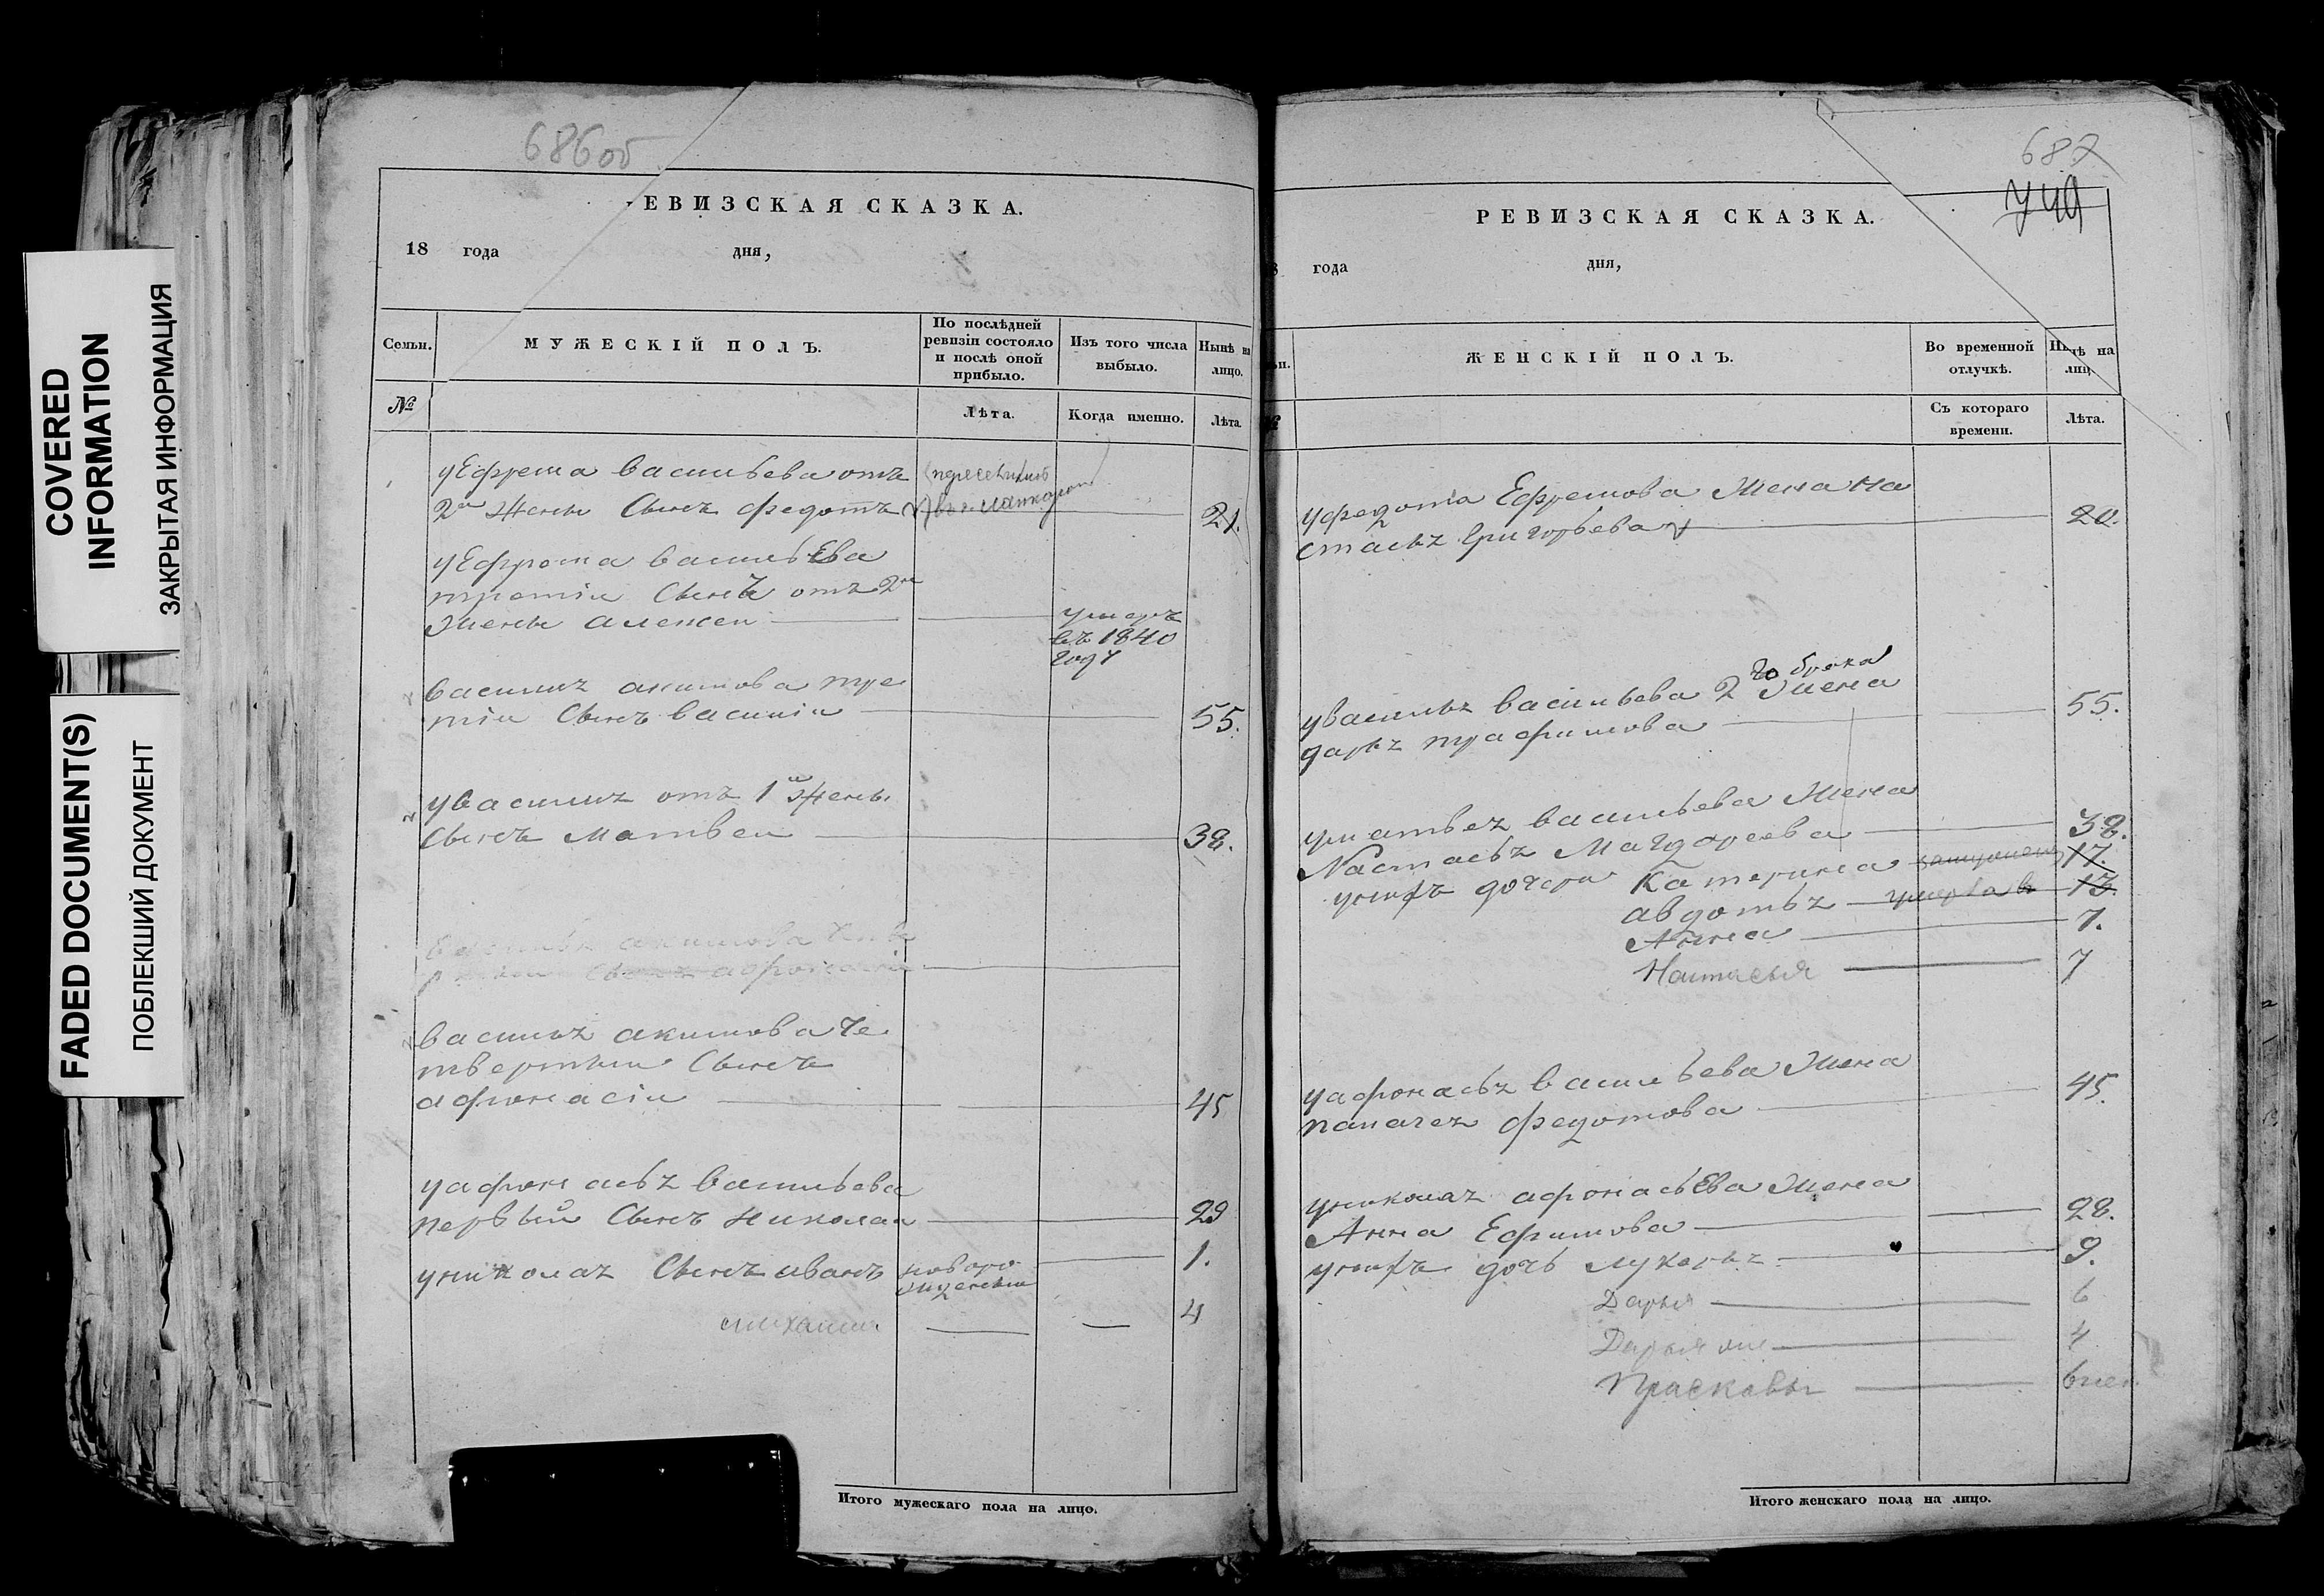 COVERED INFORMATION
ЗАКРЫТАЯ ИНФОРМАЦИЯ
FADED DOCUMENT(S)
ПОБЛЕКШИЙ ДОКУМЕНТ
686об
ЕВИЗСКАЯ СКАЗКА.
18 года дня,
Семьи. МУЖЕСКІЙ ПОЛЪ.
По послѣдней ревизіи состояло и послѣ оной прибыло.
Изъ того числа выбыло.
Нынѣ на лицо.
№ Лѣта. Когда именно. Лѣта
уЕфрема васильева отъ
2й Жены Сынъ федотъ 21.
уЕфрема василь Ева
третіи Сынъ отъ 2й
Жены алексеи умеръ
въ 1840
году
василиъ акимова тре
тіи Сынъ василіи 55.
увасилиъ отъ 1й Жены
Сынъ матвеи 38.
василиъ акимова
Сынъ афонасіи
василиъ акимова че
твертыи Сынъ
афонасіи 45
уафонасьъ васильева
первый Сынъ николаи 29
униколаъ Сынъ иванъ новоро
жденныи 1.
михаилъ 4
Итого мужескаго пола на лицо.
687
749
РЕВИЗСКАЯ СКАЗКА.
года дня,
ЖЕНСКІЙ ПОЛЪ.
Во временной отлучкѣ.
Нынѣ на лиц
Съ котораго времени.
Лѣта.
уфедота Ефремова Жена На
стасьъ Григорьева 20.
го брака
увасильъ васильева 2 Жена
дарьъ трафимова 55.
уматвеъ васильева Жена
Настасьъ 38.
унифъ дочери Катерина 17.
авдотьъ умерла 13
Анна 7.
Настасья 7
уафонасьъ васильева Жена
палагеъ федотова 45.
униколаъ афонасьЕва Жена
Анна Ефимова 28.
унифъ дочь лукерьъ 9.
Дарья 6
Дарья 4
Прасковья 6 мес
Итого женскаго пола на лицо.